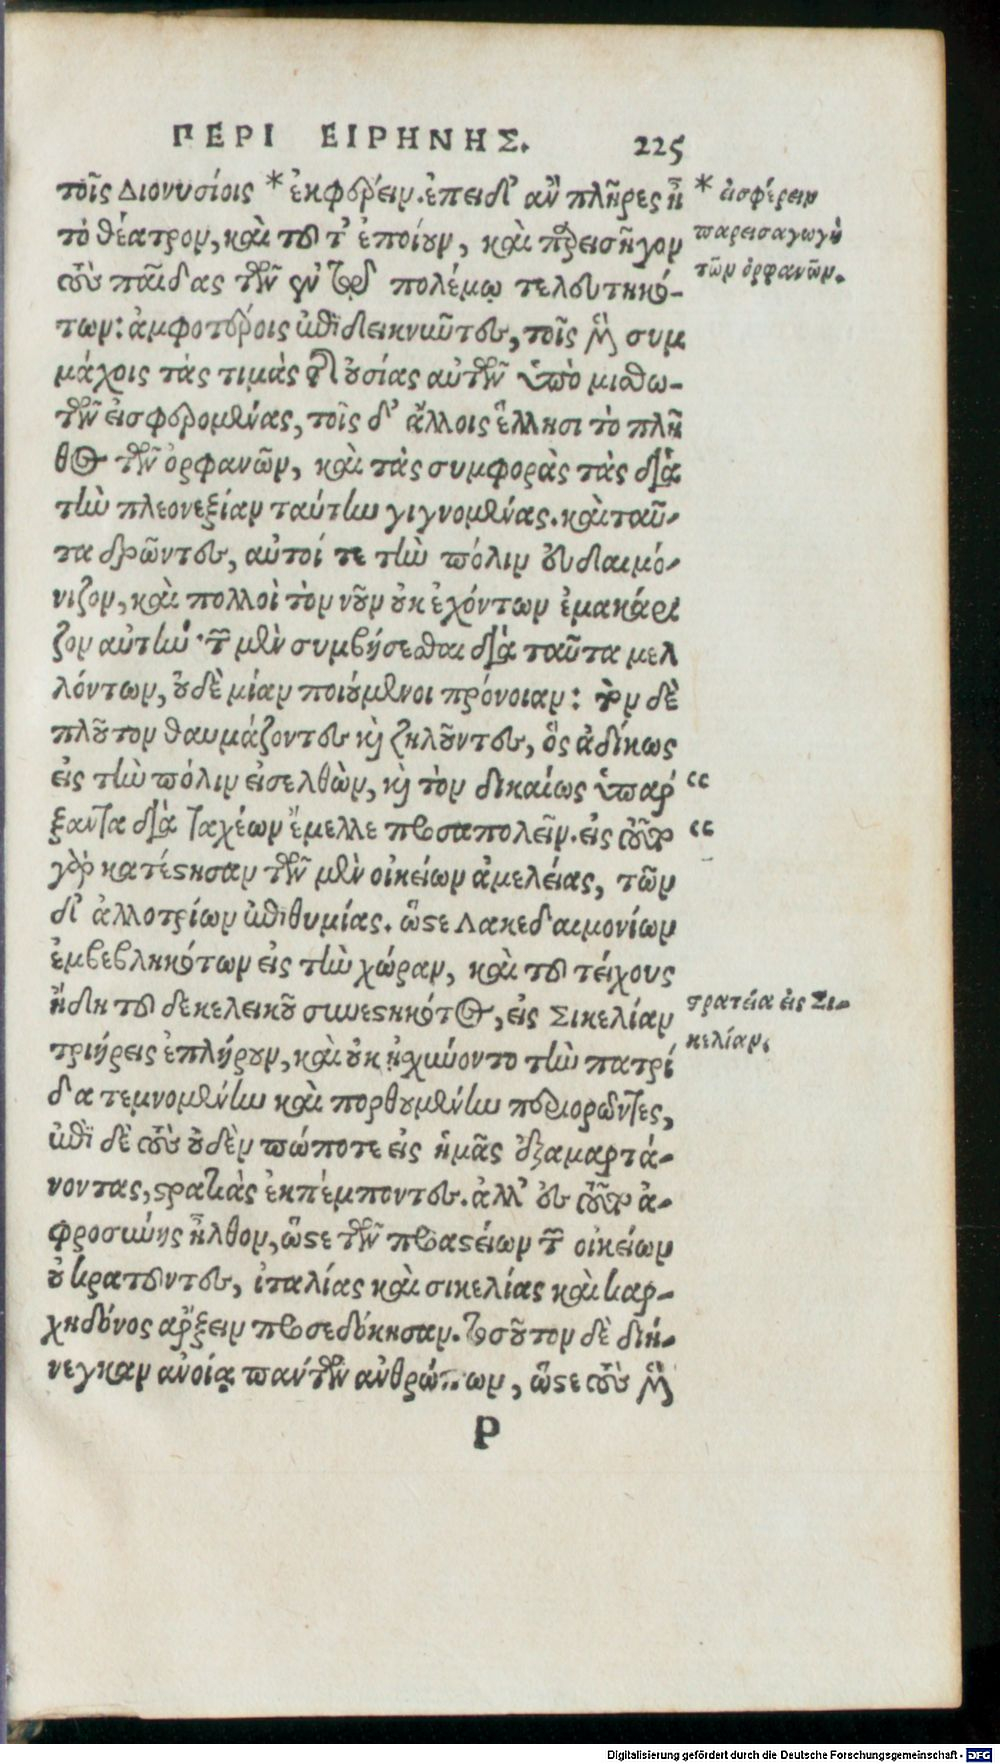 ΠΕΡΙ ΕΙΡΗΝΗΣ. 225
τοῖς Διονυσίοις * ἐκφέρειν. ἐπειδ' ἂν πλῆρες ᾖ
τὸ θέατρον, καὶ τοῦτ' ἐποίουν, καὶ παρεισῆγον
τοὺς παῖδας τῶν ἐν τῷ πολέμῳ τελευτηκό-
των: ἀμφοτέροις ἐπιδεικνιῦντες, τοῖς μὲν συμ
μάχοις τὰς τιμὰς τῆς οὐσίας αὐτῶν ὑπὸ μισθω-
τῶν εἰσφερομένας, τοῖς δ' ἄλλοις ἕλλησι τὸ πλῆ
θος τῶν ὀρφανῶν, καὶ τὰς συμφορὰς τὰς διὰ
τὴν πλεονεξίαν ταύτην γιγνομένας. καὶ ταῦ-
τα δρῶντες, αὐτοί τε τὴν πόλιν εὐδαιμό-
νιζον, καὶ πολλοὶ τὸν νοῦν οὐκ ἐχόντων ἐμακάρι
ζον αὐτήν· τῶν μὲν συμβήσεσθαι διὰ ταῦτα μελ
λόντων, οὐδὲ μίαν ποιούμενοι πρόνοιαν: τὸν δὲ
πλοῦτον θαυμάζοντες καὶ ζηλοῦντες, ὃς ἀδίκως
εἰς τὴν πόλιν εἰσελθὼν, καὶ τὸν δικαίως ὑπάρ “
ξαντα διὰ ταχέων ἔμελλε προσαπολεῖν. εἰς τοῦτο “
γὰρ κατέστησαν τῶν μὲν οἰκείων ἀμελείας, τῶν
δ' ἀλλοτρίων ἐπιθυμίας. ὥστε Λακεδαιμονίων
ἐμβεβληκότων εἰς τὴν χώραν, καὶ τοῦ τείχους
ἤδη τοῦ δεκελεικοῦ συνεστηκότος, εἰς Σικελίαν
τριήρεις ἐπλήρουν, καὶ οὐκ ᾐσχύνοντο τὴν πατρί
δα τεμνομένην καὶ πορθουμένην περιορῶντες,
ἐπὶ δὲ τοὺς οὐδὲν πώποτε εἰς ἡμᾶς ἐξαμαρτά-
νοντας, στρατιὰς ἐκπέμποντες. ἀλλ' εἰς τοῦτο ἀ-
φροσύνης ἦλθον, ὥστε τῶν προαστείων τῶν οἰκείων
οὐ κρατοῦντες, ἰταλίας καὶ σικελίας καὶ καρ-
χηδόνος ἄρξειν προσεδόκησαν. τοσοῦτον δὲ διή-
νεγκαν ἀνοίᾳ πάντων ἀνθρώπων, ὥστε τοὺς μὲν
Ρ
* εἰσφέρειν
παρεισαγωγὴ
τῶν ὀρφανῶν.
στρατεία εἰς Σι-
κελίαν.
Digitalisierung gefördert durch die Deutsche Forschungsgemeinschaft - DFG